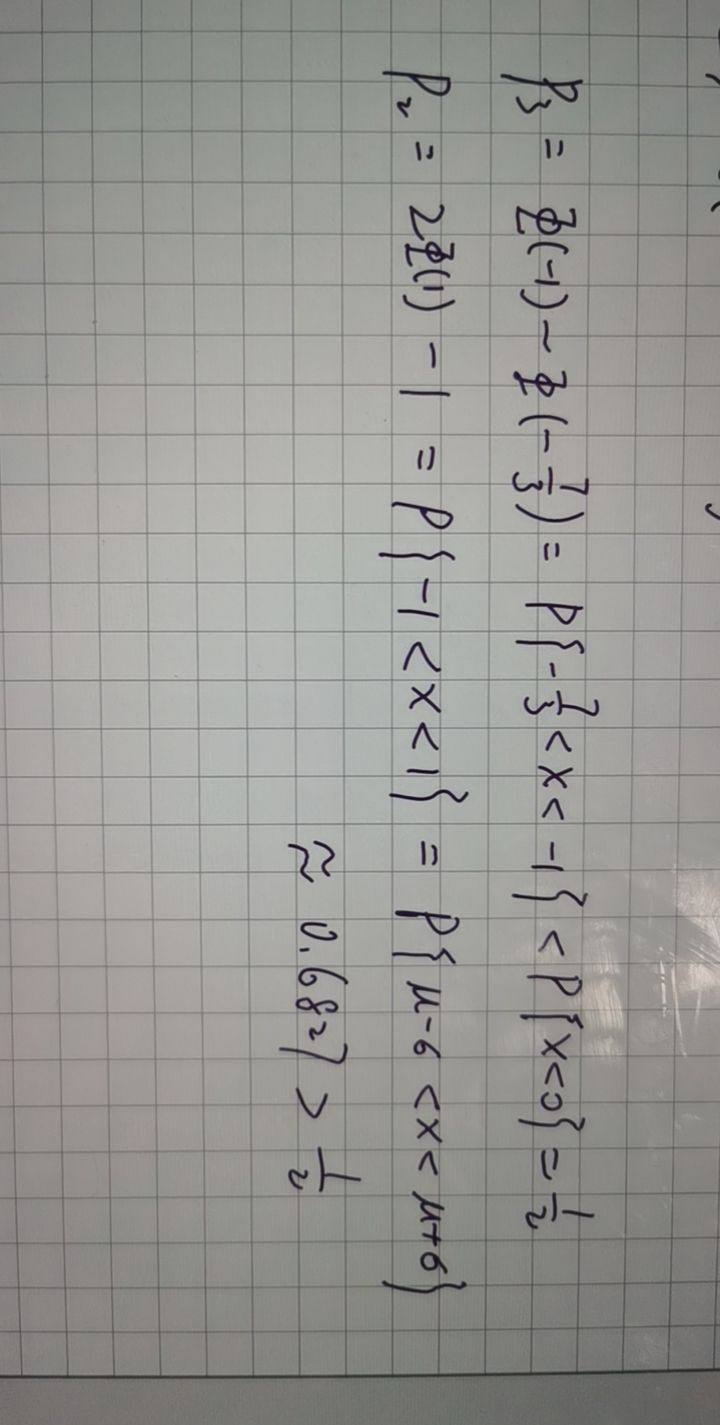 P₃ = Φ(-1) - Φ(-7/3) = P{-7/3 < X < -1} < P{X < 0} = 1/2
P₂ = 2Φ(1) - 1 = P{-1 < X < 1} = P{μ-σ < X < μ+σ}
≈ 0.6827 > 1/2